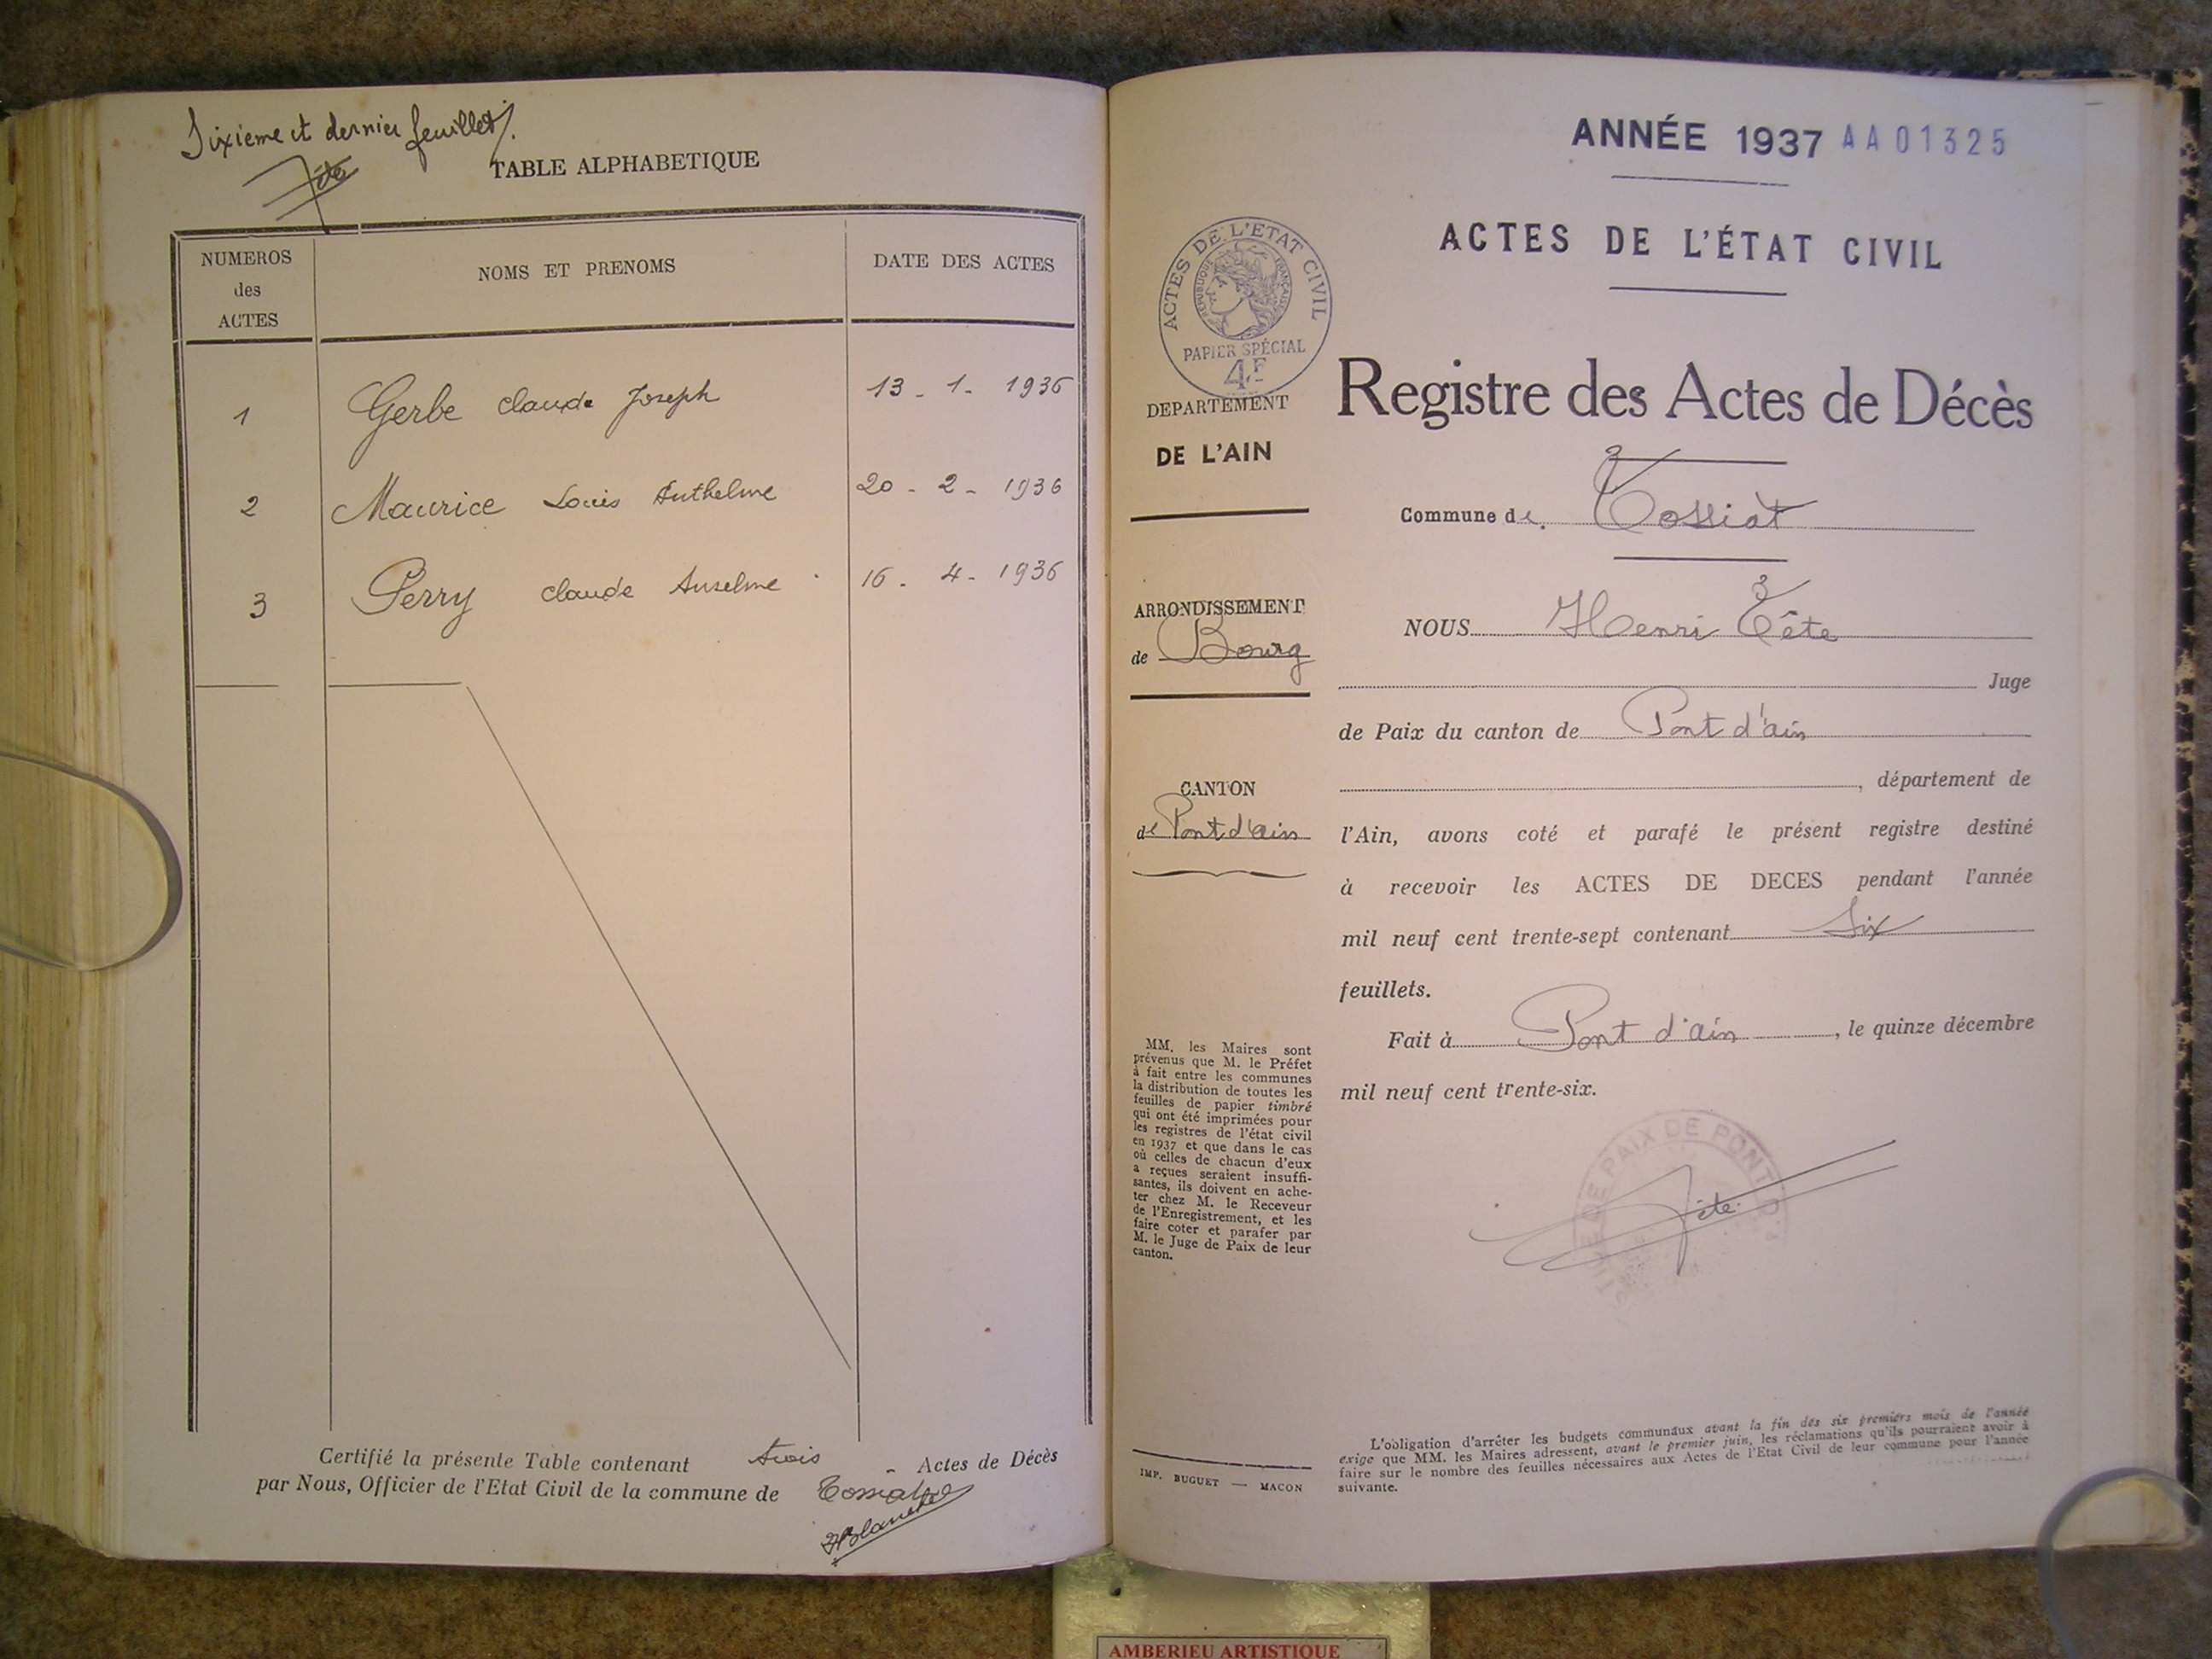 Sixième et dernier feuillet.
Tête
TABLE ALPHABETIQUE
NUMEROS
des
ACTES
NOMS ET PRENOMS
DATE DES ACTES
1 Gerbe claude Joseph 13 - 1 - 1936
2 Maurice Louis Anthelme 20 - 2 - 1936
3 Perry claude Anselme 16 - 4 - 1936
Certifié la présente Table contenant trois Actes de Décès
par Nous, Officier de l'Etat Civil de la commune de Tossiat
ANNÉE 1937 AA01325
ACTES DE L'ÉTAT CIVIL
ACTES DE L'ETAT CIVIL
REPUBLIQUE FRANÇAISE
PAPIER SPÉCIAL
4F
DEPARTEMENT
DE L'AIN
ARRONDISSEMENT
de Bourg
CANTON
de Pont d'ain
MM. les Maires sont
prévenus que M. le Préfet
à fait entre les communes
la distribution de toutes les
feuilles de papier timbré
qui ont été imprimées pour
les registres de l'état civil
en 1937 et que dans le cas
où celles de chacun d'eux
a reçues seraient insuffi-
santes, ils doivent en ache-
ter chez M. le Receveur
de l'Enregistrement, et les
faire coter et parafer par
M. le Juge de Paix de leur
canton.
IMP. BUGUET — MACON
Registre des Actes de Décès
Commune de Tossiat
NOUS Henri Tête
Juge
de Paix du canton de Pont d'ain
, département de
l'Ain, avons coté et parafé le présent registre destiné
à recevoir les ACTES DE DECES pendant l'année
mil neuf cent trente-sept contenant Six
feuillets.
Fait à Pont d'ain, le quinze décembre
mil neuf cent trente-six.
DE PAIX DE PONT D
Tête
L'obligation d'arrêter les budgets communaux avant la fin des six premiers mois de l'année
exige que MM. les Maires adressent, avant le premier juin, les réclamations qu'ils pourraient avoir à
faire sur le nombre des feuilles nécessaires aux Actes de l'Etat Civil de leur commune pour l'année
suivante.
AMBERIEU ARTISTIQUE